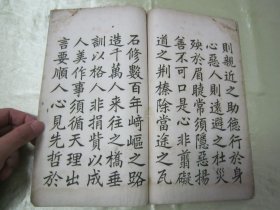 則親近之助德行於身
心惡人則遠避之杜災
殃於眉睫常須隱惡揚
善不可口是心非翦礙
道之荆榛除當途之瓦
石修數百年崎嶇之路
造千萬人來往之橋垂
訓以格人非捐貲以成
人美作事須循天理出
言要順人心見先哲於